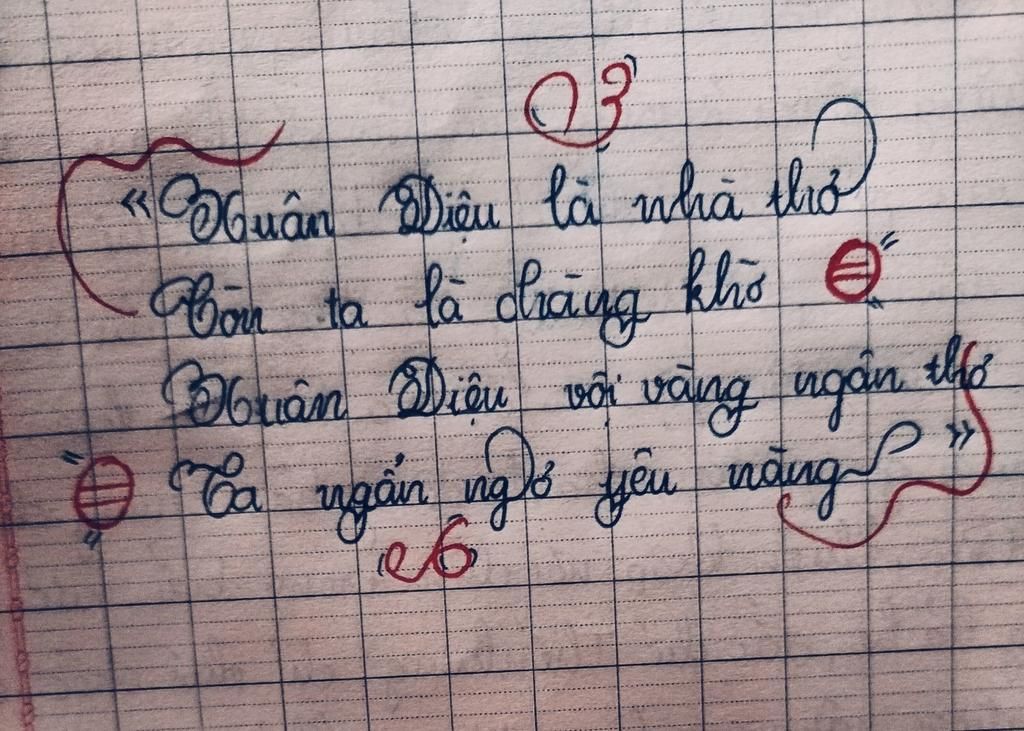 03
«Xuân Diệu là nhà thơ
Còn ta là chàng khờ
Xuân Diệu vội vàng ngân thơ
Ta ngẩn ngơ yêu nàng»
e6